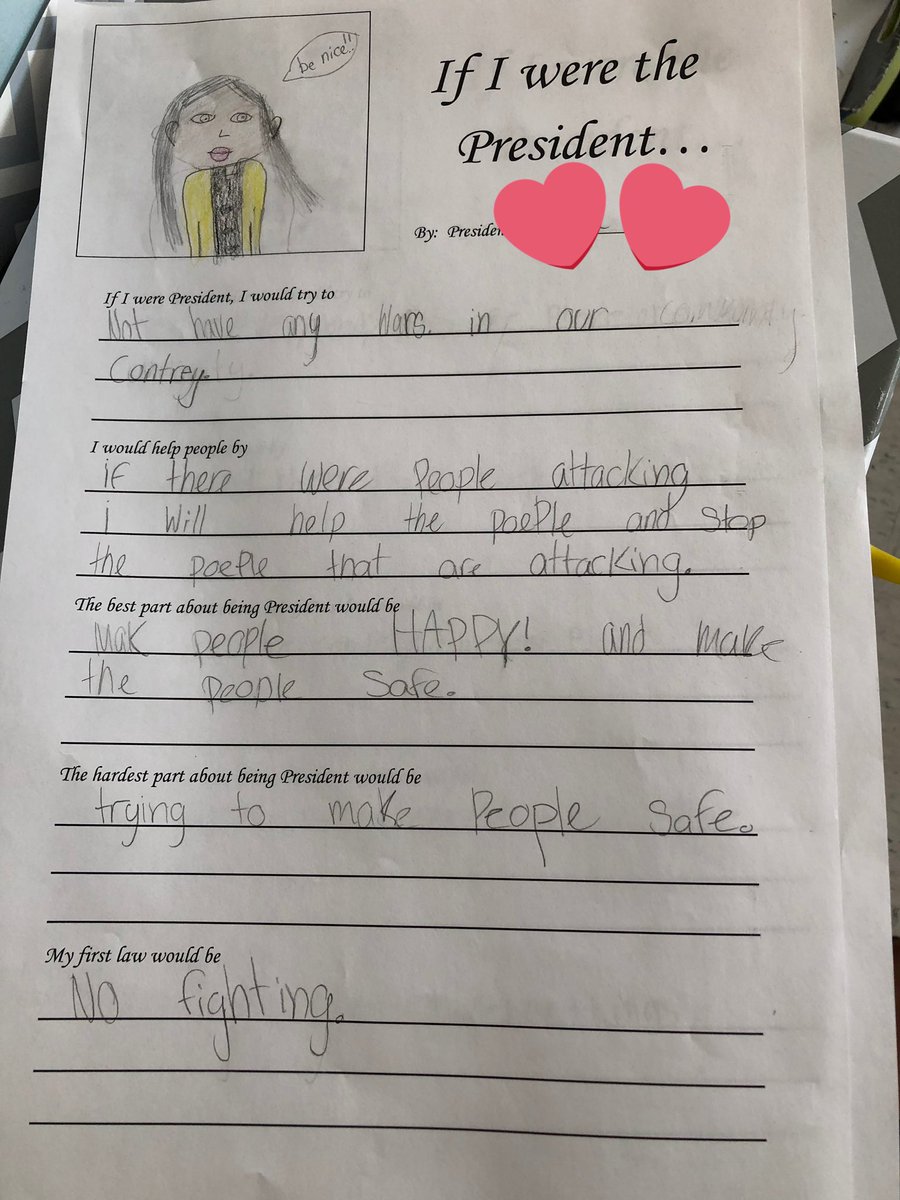 be nice!!
If I were the
President...
By: Presiden
If I were President, I would try to
Not have any Wars. in our community
Contrey.
I would help people by
if there were People attacking
i Will help the poePle and Stop
the poePle that are attacking.
The best part about being President would be
Mak people HAPPY! and make
the people Safe.
The hardest part about being President would be
trying to make People Safe.
My first law would be
No fighting.